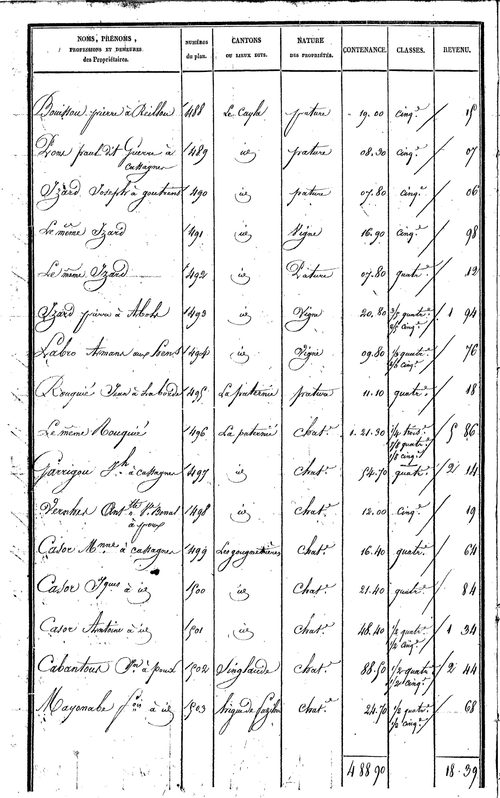 NOMS, PRÉNOMS, PROFESSIONS ET DEMEURES des Propriétaires. | NUMÉROS du plan. | CANTONS OU LIEUX DITS. | NATURE DES PROPRIÉTÉS. | CONTENANCE. | CLASSES. | REVENU.
pierre à | 1488 | Le Cayla | pature | 19.00 | cinq.e | 15
paul dit Guerre à cassagnes | 1489 | id | pature | 08.30 | cinq.e | 07
Izard Joseph à goutrens | 1490 | id | pature | 07.80 | cinq.e | 06
Le même Izard | 1491 | id | Vigne | 16.90 | cinq.e | 98
Le même Izard | 1492 | id | Pature | 07.80 | quatr.e | 12
Izard pierre à | 1493 | id | Vigne | 20.80 | 1/2 quatr.e 1/2 cinq.e | 1 94
Labro Amans aux | 1494 | id | Vigne | 09.80 | 1/2 quatr.e 1/2 cinq.e | 76
Rouquié Jean à Laborde | 1495 | La paternie | pature | 11.10 | quatr.e | 18
Le même Rouquié | 1496 | La paternié | Chat.e | 1.21.30 | 1/4 trois.e 1/8 quatr.e 1/8 cinq.e | 5 86
Garrigou J.ph à cassagnes | 1497 | id | chat.e | 54.70 | quatr.e | 2 14
Vernhes | 1498 | id | chat.e | 12.00 | cinq.e | 19
Casor M.nne à cassagnes | 1499 | | Chat.e | 16.40 | quatr.e | 64
Casor Jques à id | 1500 | id | Chat.e | 21.40 | quatr.e | 84
Casor Antoine à id | 1501 | id | Chat.e | 48.40 | 1/2 quatr.e 1/2 cinq.e | 1 34
Cabantous | 1502 | Singlande | Chat.e | 88.50 | 1/2 quatr.e 1/2 cinq.e | 2 44
Mayonabe f.çois à id | 1503 | | Chat.e | 24.70 | 1/2 quatr.e 1/2 cinq.e | 68
4 88 90 | 18.39